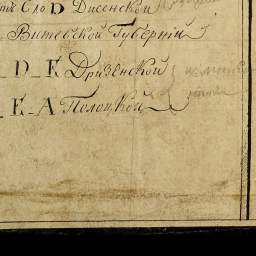 Сло D Дисенской
Витебской Губернiи
D_E Дризенской
E_A Полоцкой